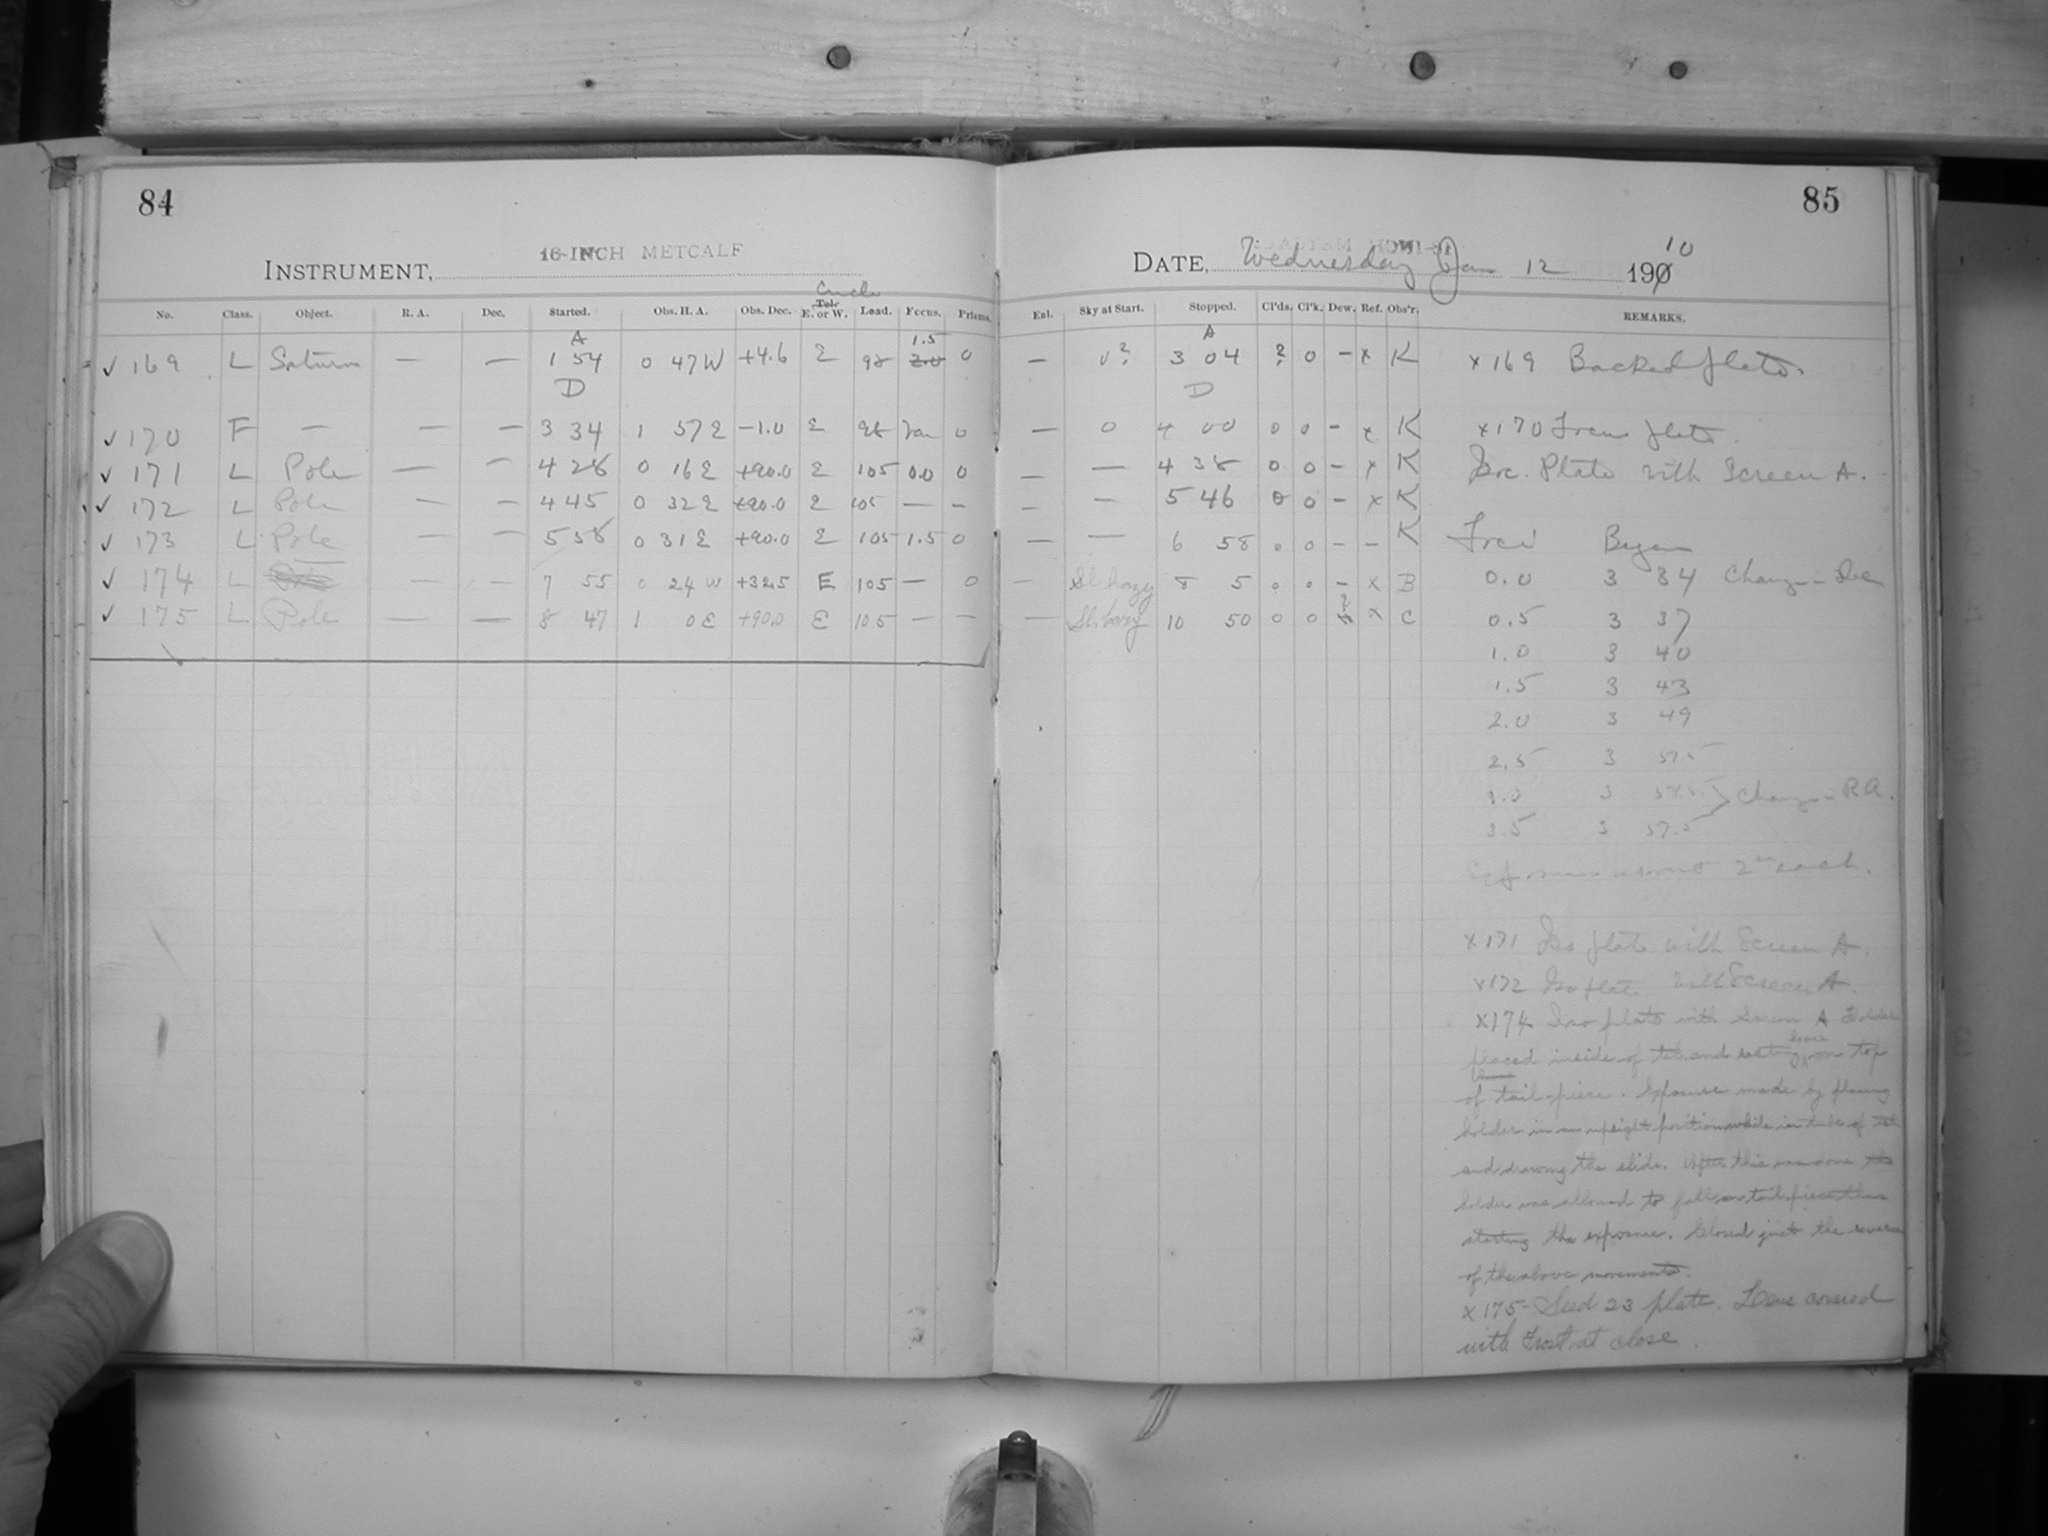 84
16-INCH METCALF
INSTRUMENT,
Circle
No. Class. Object. R. A. Dec. Started. Obs. H. A. Obs. Dec. Tele E. or W. Load. Focus. Prisms.
A 1.5
✓ 169 L Saturn — — 1 54 0 47 W +4.6 E 98 2.0 0
D
✓ 170 F — — — 3 34 1 57 E -1.0 E 98 Var 0
✓ 171 L Pole — — 4 28 0 16 E +90.0 E 105 0.0 0
✓ 172 L Pole — — 4 45 0 32 E +90.0 E 105 — —
✓ 173 L Pole — — 5 58 0 31 E +90.0 E 105 1.5 0
✓ 174 L Pole — — 7 55 0 24 W +32.5 E 105 — 0
✓ 175 L Pole — — 8 47 1 0 E +90.0 E 105 — —
85
DATE, Wednesday Jan 12 1900 10
Enl. Sky at Start. Stopped. Cl'ds. Cl'k. Dew. Ref. Obs'r. REMARKS.
A
— 0? 3 04 ? 0 — x K x 169 Backed plate.
D
— 0 4 00 0 0 - x K x 170 Focus plate.
— — 4 38 0 0 - x K Iso. Plate with Screen A.
— — 5 46 0 0 - x K
— — 6 58 0 0 - - K Foci Began
— Sl. hazy 8 5 0 0 - x B 0.0 3 34 Change in Dec
— Sl. hazy 10 50 0 0 ? x C 0.5 3 37
1.0 3 40
1.5 3 43
2.0 3 49
2.5 3 51.5
3.0 3 54.5 Change in R.A.
3.5 3 57.5
Exposures about 2m each.
x 171 Iso plate with Screen A.
x 172 Iso plate with Screen A.
x 174 Iso plate with Screen A Holder
placed inside of tel. and resting loose on top
of tail-piece. Exposure made by placing
holder in an upright position while in tube of tel.
and drawing the slide. After this was done the
holder was allowed to fall on tail piece thus
starting the exposure. Closed just the reverse
of the above movements.
x 175 - Seed 23 plate. Lens covered
with frost at close.